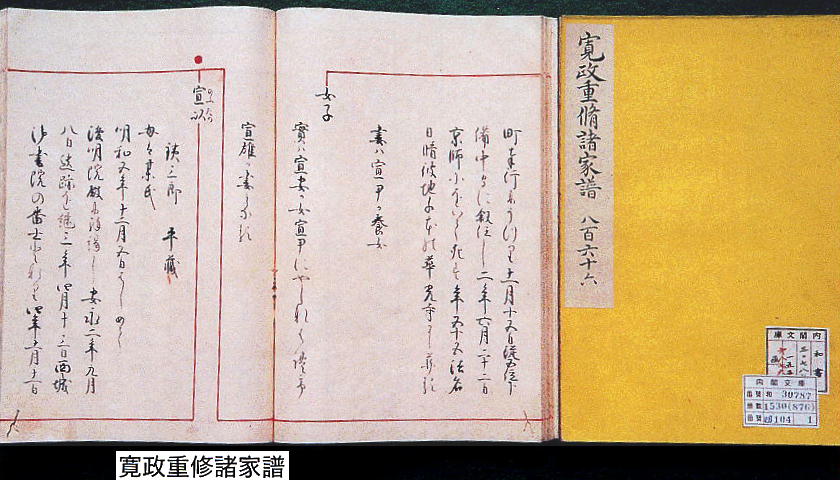 寛政重脩諸家譜 八百六十六
町奉行にうつり十一月十五日従五位下
備中守に叙任し二年六月二十二日
京師にをいて死す年五十五法名
日晴彼地千本の華光寺に葬る
妻ハ宣尹が養女
女子
實ハ宣安が女宣尹にやしなはれ
宣雄が妻となる
宣以
銕三郎 平藏
母ハ某氏
明和五年十二月五日はじめて
浚明院殿に拝謁し 安永二年九月
八日遺跡を継三年四月十三日西城
御書院の番士となり四年十一月十一日
内閣文庫
和書
内閣文庫
番號 和 30787
冊數 1530(876)
104 1
寛政重修諸家譜